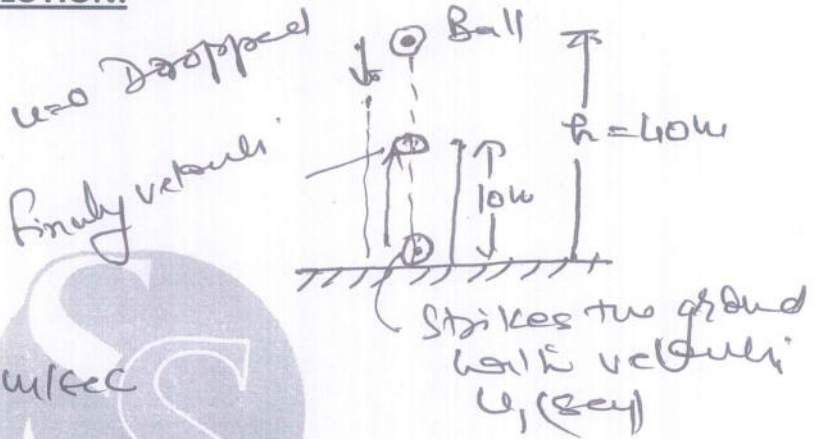 LUTION:
u=0 Dropped
Ball
h = 40m
Finaly velocity
10m
Strikes the ground
with velocity
u₁ (say)
m/sec
SS